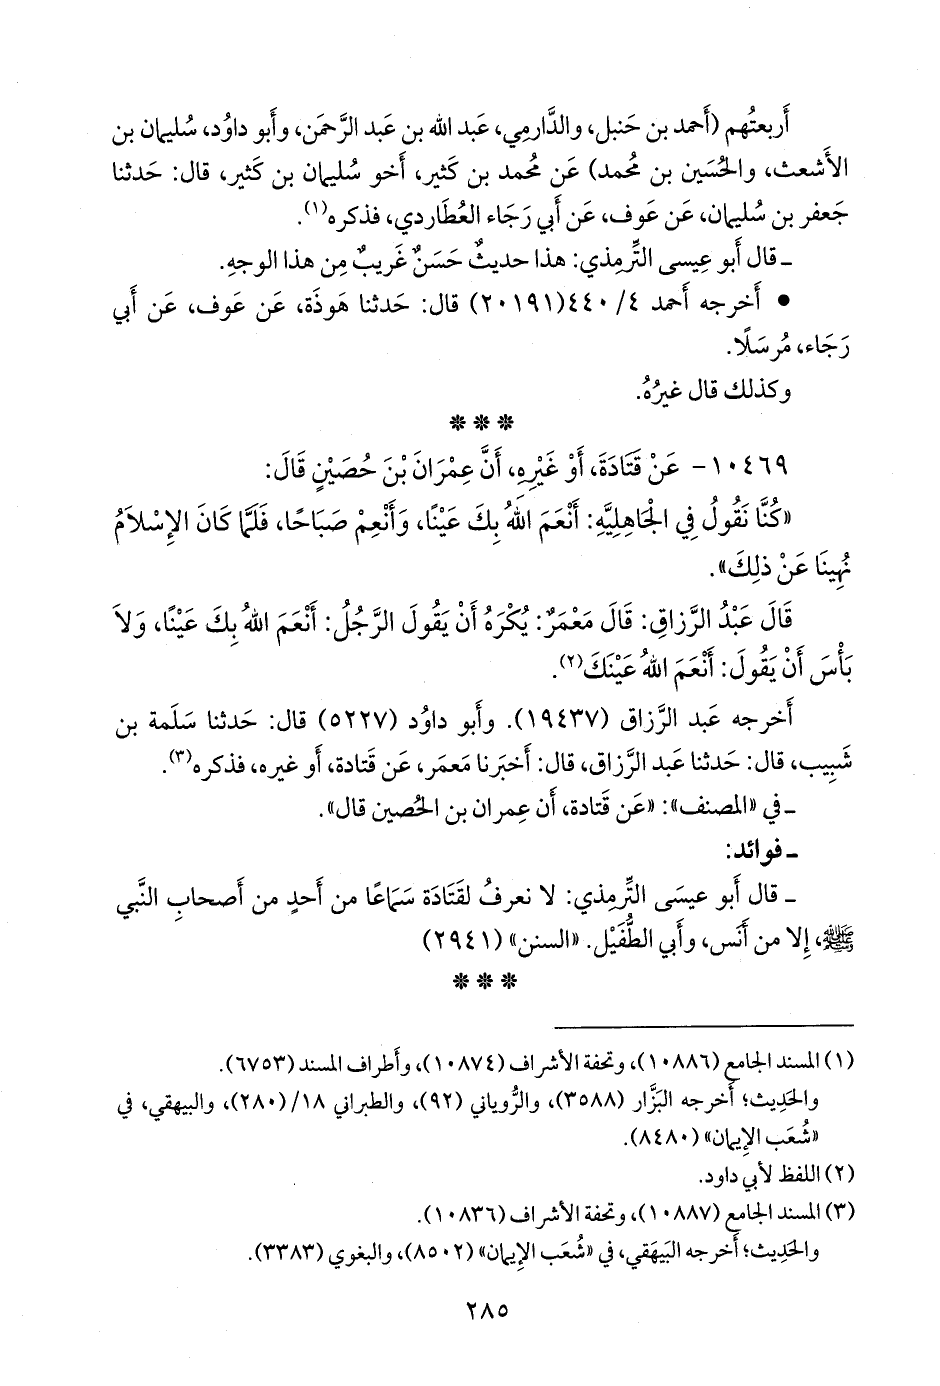 أَربعتُهم (أَحمد بن حَنبل، والدَّارمِي، عَبد الله بن عَبد الرَّحمَن، وأَبو داوُد، سُليمان بن
الأَشعث، والحُسَين بن مُحمد) عَن مُحمد بن كَثير، أَخو سُليمان بن كَثير، قال: حَدثنا
جَعفر بن سُليمان، عَن عَوف، عَن أَبي رَجَاء العُطَاردي، فذكره(١).
ـ قال أَبو عِيسى التِّرمِذي: هذا حديثٌ حَسَنٌ غَريبٌ مِن هذا الوجهِ.
• أَخرجه أَحمد ٤/ ٤٤٠(٢٠١٩١) قال: حَدثنا هَوذَة، عَن عَوف، عَن أَبي
رَجَاء، مُرسَلًا.
وكذلك قال غيرُهُ.
* * *
١٠٤٦٩- عَنْ قَتَادَةَ، أَوْ غَيْرِهِ، أَنَّ عِمْرَانَ بْنَ حُصَيْنٍ قَالَ:
«كُنَّا نَقُولُ فِي الْجَاهِلِيَّهِ: أَنْعَمَ اللهُ بِكَ عَيْنًا، وَأَنْعِمْ صَبَاحًا، فَلَمَّا كَانَ الإِسْلاَمُ
نُهِينَا عَنْ ذلِكَ».
قَالَ عَبْدُ الرَّزاقِ: قَالَ مَعْمَرٌ: يُكْرَهُ أَنْ يَقُولَ الرَّجُلُ: أَنْعَمَ اللهُ بِكَ عَيْنًا، وَلاَ
بَأْسَ أَنْ يَقُولَ: أَنْعَمَ اللهُ عَيْنَكَ(٢).
أَخرجه عَبد الرَّزاق (١٩٤٣٧). وأَبو داوُد (٥٢٢٧) قال: حَدثنا سَلَمة بن
شَبِيب، قال: حَدثنا عَبد الرَّزاق، قال: أَخبَرنا مَعمَر، عَن قَتادة، أَو غيره، فذكره(٣).
ـ في «المصنف»: «عَن قَتادة، أَن عِمران بن الحُصين قال».
ـ فوائد:
ـ قال أَبو عيسَى التِّرمِذي: لا نعرفُ لقَتَادَة سَمَاعًا من أَحدٍ من أَصحابِ النَّبي
ﷺ، إِلا من أَنَس، وأَبي الطُّفَيْل. «السنن» (٢٩٤١)
* * *
(١) المسند الجامع (١٠٨٨٦)، وتحفة الأشراف (١٠٨٧٤)، وأَطراف المسند (٦٧٥٣).
والحَدِيث؛ أَخرجه البَزَّار (٣٥٨٨)، والرُّوياني (٩٢)، والطبراني ١٨/(٢٨٠)، والبيهقي، في
«شُعَب الإِيمان» (٨٤٨٠).
(٢) اللفظ لأبي داود.
(٣) المسند الجامع (١٠٨٨٧)، وتحفة الأشراف (١٠٨٣٦).
والحَدِيث؛ أَخرجه البَيهَقي، في «شُعَب الإِيمان» (٨٥٠٢)، والبغوي (٣٣٨٣).
٢٨٥